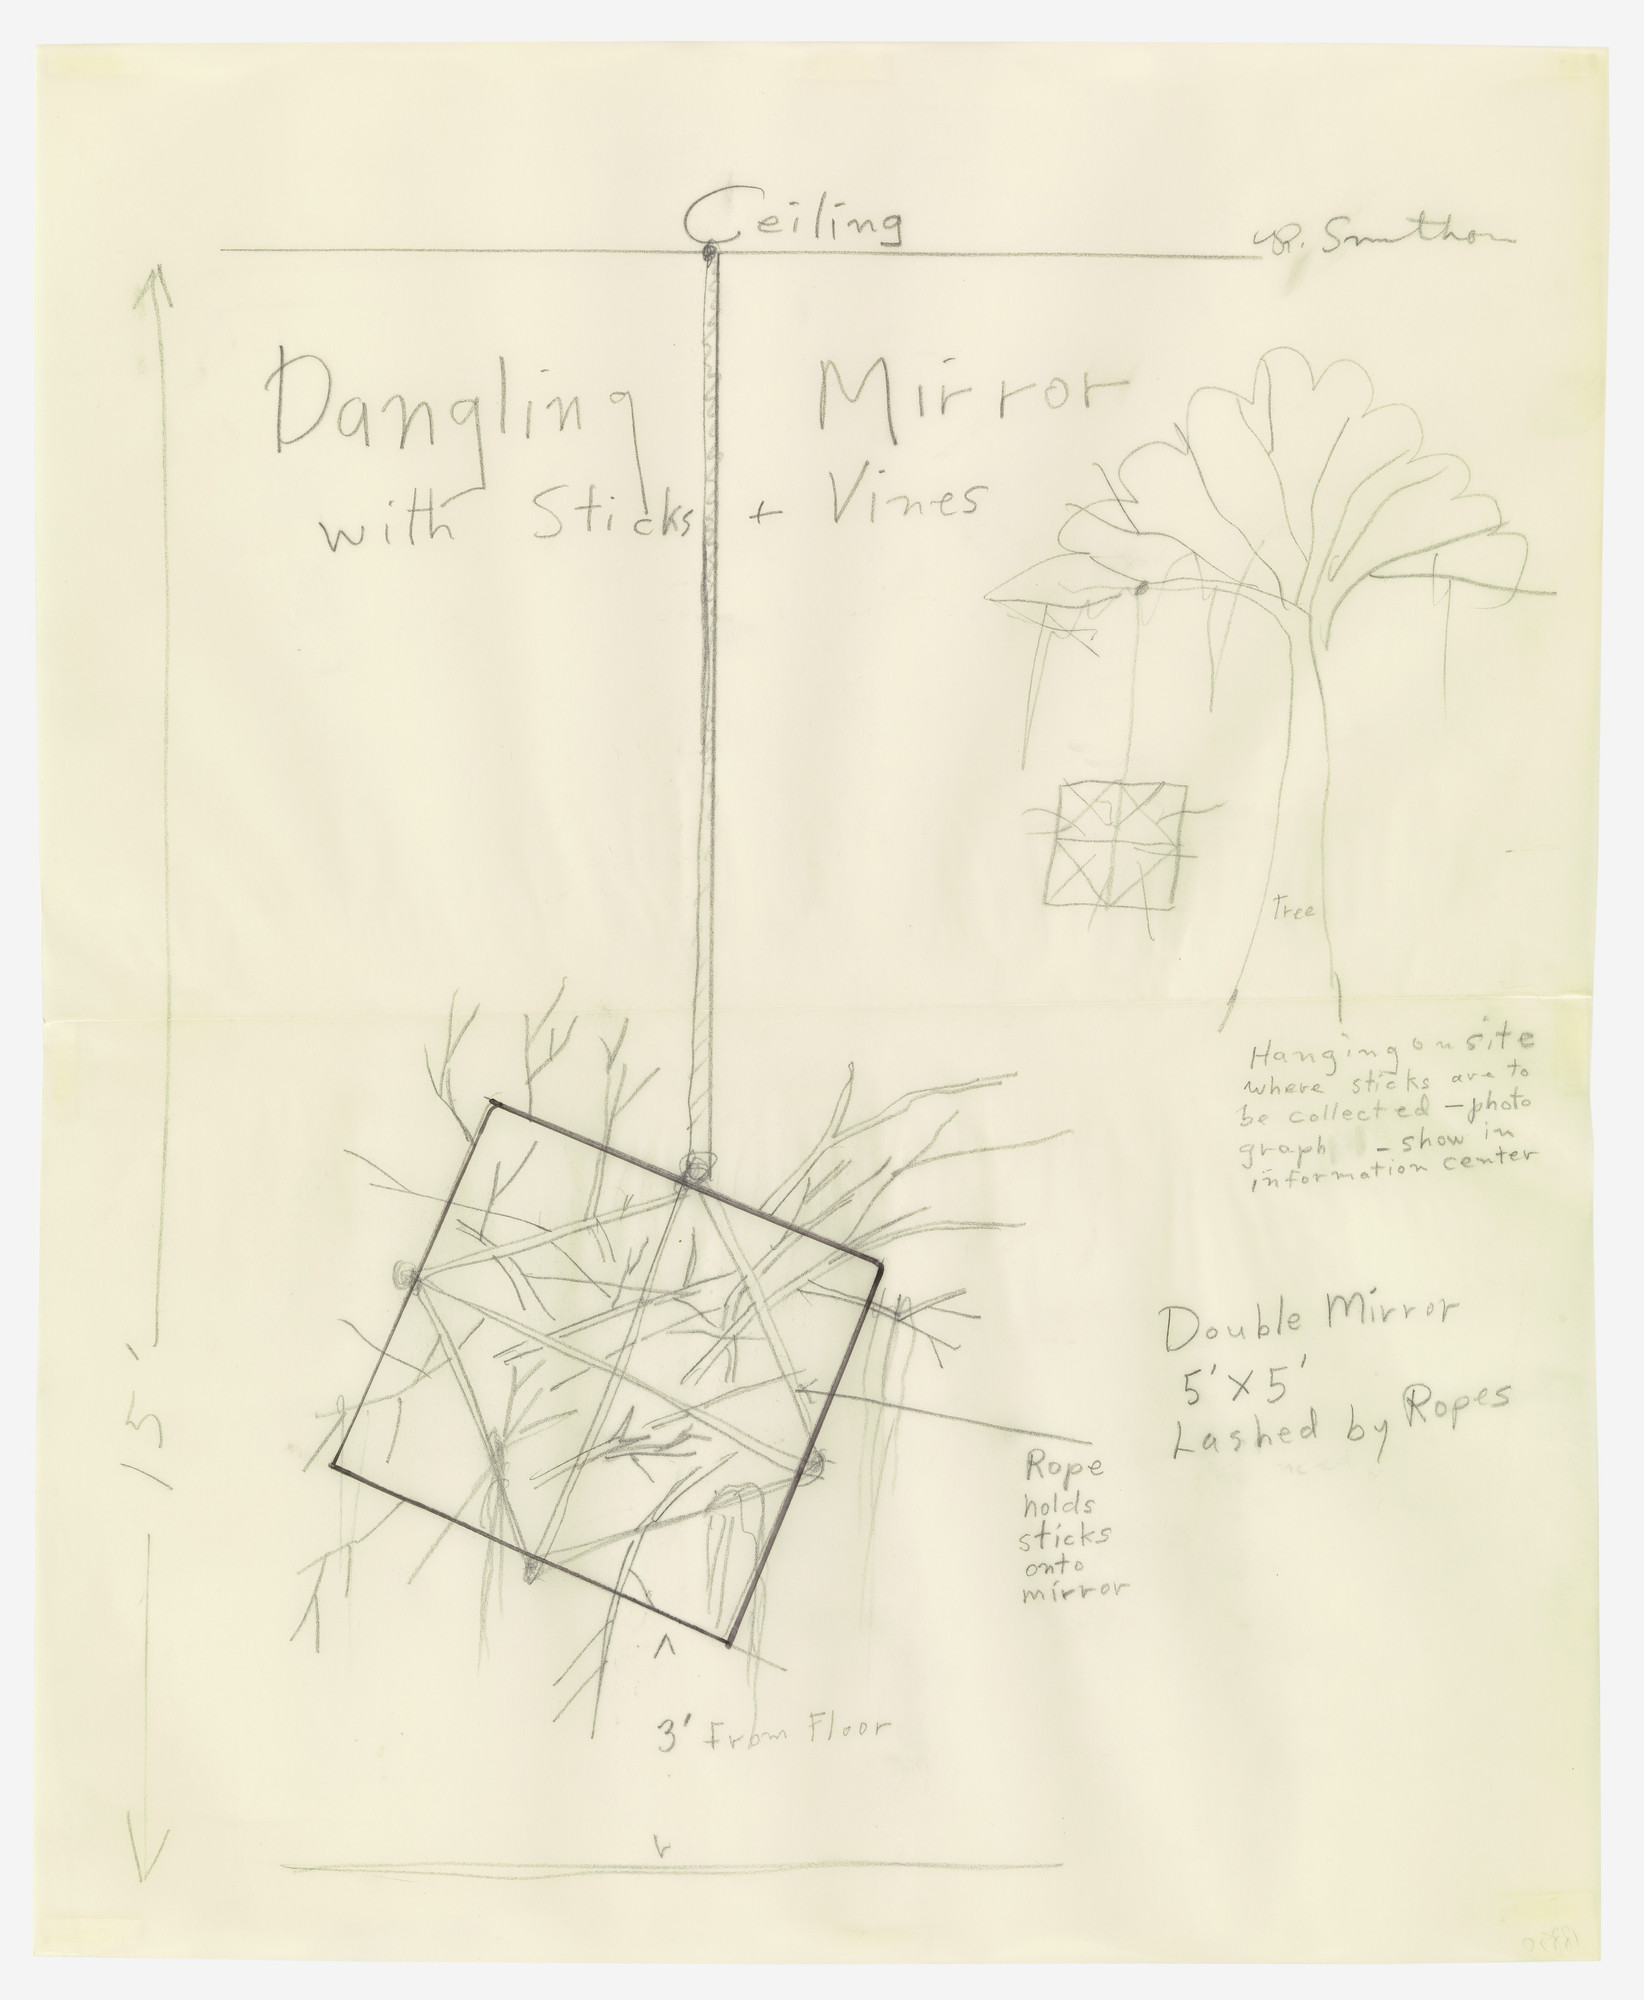 Ceiling
R. Smithson
Dangling Mirror
with Sticks + Vines
Tree
Hanging on site
where sticks are to
be collected - photo
graph - show in
information center
15'
Double Mirror
5' X 5'
Lashed by Ropes
Rope
holds
sticks
onto
mirror
3' From Floor